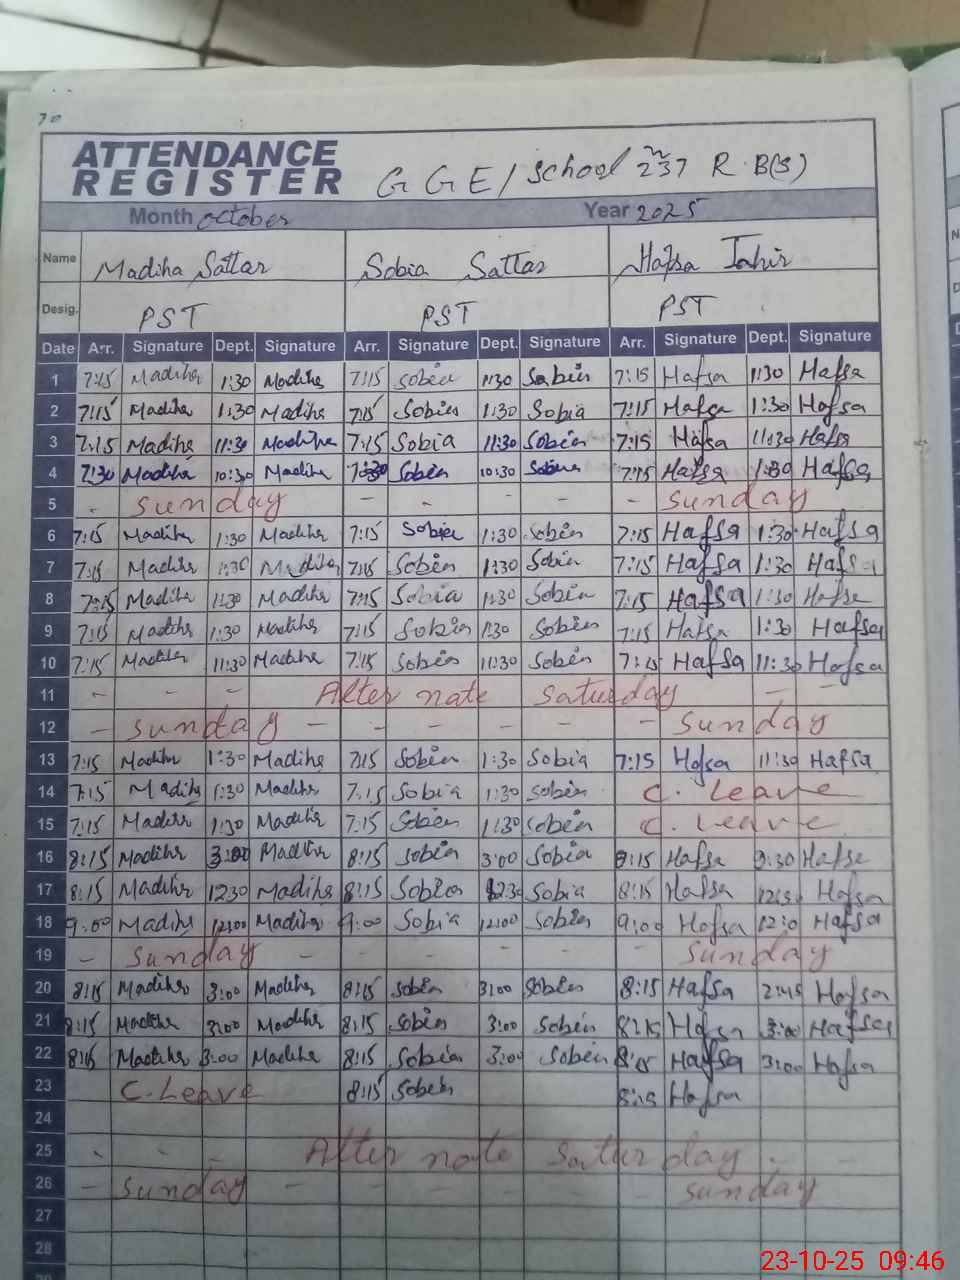 70
ATTENDANCE
REGISTER G G E/School 237 R.B(S)
Month October Year 2025
Name Madiha Sattar Sobia Sattar Hafsa Tahir
Desig. PST PST PST
Date Arr. Signature Dept. Signature Arr. Signature Dept. Signature Arr. Signature Dept. Signature
1 7:15 Madiha 1:30 Madiha 7:15 Sobia 1:30 Sobia 7:15 Hafsa 1:30 Hafsa
2 7:15 Madiha 1:30 Madiha 7:15 Sobia 1:30 Sobia 7:15 Hafsa 1:30 Hafsa
3 7:15 Madiha 11:30 Madiha 7:15 Sobia 11:30 Sobia 7:15 Hafsa 11:30 Hafsa
4 7:30 Madiha 10:30 Madiha 7:30 Sobia 10:30 Sobia 7:15 Hafsa 1:30 Hafsa
5 - Sunday - - - - - Sunday
6 7:15 Madiha 1:30 Madiha 7:15 Sobia 1:30 Sobia 7:15 Hafsa 1:30 Hafsa
7 7:15 Madiha 1:30 Madiha 7:15 Sobia 1:30 Sobia 7:15 Hafsa 1:30 Hafsa
8 7:15 Madiha 1:30 Madiha 7:15 Sobia 1:30 Sobia 7:15 Hafsa 1:30 Hafsa
9 7:15 Madiha 1:30 Madiha 7:15 Sobia 1:30 Sobia 7:15 Hafsa 1:30 Hafsa
10 7:15 Madiha 11:30 Madiha 7:15 Sobia 11:30 Sobia 7:15 Hafsa 11:30 Hafsa
11 - - - Alternate Saturday - -
12 - Sunday - - - - - Sunday
13 7:15 Madiha 1:30 Madiha 7:15 Sobia 1:30 Sobia 7:15 Hafsa 11:30 Hafsa
14 7:15 Madiha 1:30 Madiha 7:15 Sobia 1:30 Sobia C. Leave
15 7:15 Madiha 1:30 Madiha 7:15 Sobia 1:30 Sobia C. Leave
16 8:15 Madiha 3:00 Madiha 8:15 Sobia 3:00 Sobia 8:15 Hafsa 9:30 Hafsa
17 8:15 Madiha 12:30 Madiha 8:15 Sobia 12:30 Sobia 8:15 Hafsa 12:30 Hafsa
18 9:00 Madiha 12:00 Madiha 9:00 Sobia 12:00 Sobia 9:00 Hafsa Hafsa
19 - Sunday - - - - - Sunday
20 8:15 Madiha 3:00 Madiha 8:15 Sobia 3:00 Sobia 8:15 Hafsa 2:45 Hafsa
21 8:15 Madiha 3:00 Madiha 8:15 Sobia 3:00 Sobia 8:15 Hafsa 3:00 Hafsa
22 8:15 Madiha 3:00 Madiha 8:15 Sobia 3:00 Sobia 8:15 Hafsa 3:00 Hafsa
23 C. Leave 8:15 Sobia 8:15 Hafsa
24
25 - - - Alternate Saturday - -
26 - Sunday - - - - - Sunday
27
28
23-10-25 09:46